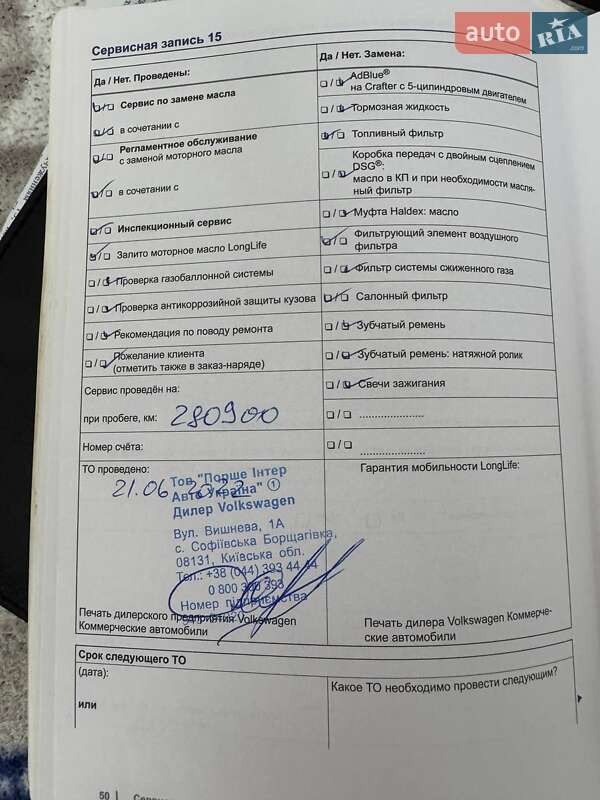 auto RIA .com
Сервисная запись 15
Да / Нет. Проведены:
Сервис по замене масла
в сочетании с
Регламентное обслуживание
с заменой моторного масла
в сочетании с
Инспекционный сервис
Залито моторное масло LongLife
Проверка газобаллонной системы
Проверка антикоррозийной защиты кузова
Рекомендация по поводу ремонта
Пожелание клиента
(отметить также в заказ-наряде)
Сервис проведён на:
при пробеге, км: 280900
Номер счёта:
Да / Нет. Замена:
AdBlue®
на Crafter с 5-цилиндровым двигателем
Тормозная жидкость
Топливный фильтр
Коробка передач с двойным сцеплением
DSG®:
масло в КП и при необходимости масля-
ный фильтр
Муфта Haldex: масло
Фильтрующий элемент воздушного
фильтра
Фильтр системы сжиженного газа
Салонный фильтр
Зубчатый ремень
Зубчатый ремень: натяжной ролик
Свечи зажигания
......................
......................
ТО проведено:
21.06
Тов "Порше Інтер
Авто Україна" ①
Дилер Volkswagen
Вул. Вишнева, 1А
с. Софіївська Борщагівка,
08131, Київська обл.
Тел.: +38 (044) 393 44 44
Номер підприємства
Печать дилерского предприятия Volkswagen
Коммерческие автомобили
Гарантия мобильности LongLife:
Печать дилера Volkswagen Коммерче-
ские автомобили
Срок следующего ТО
(дата):
или
Какое ТО необходимо провести следующим?
50